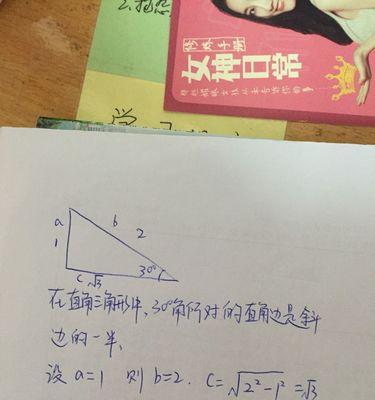 修炼手册
女神日常
a
b
1
2
30°
c √3
在直角三角形中,30°角所对的直角边是斜
边的一半,
设 a=1 则 b=2. C=√2²-1² =√3